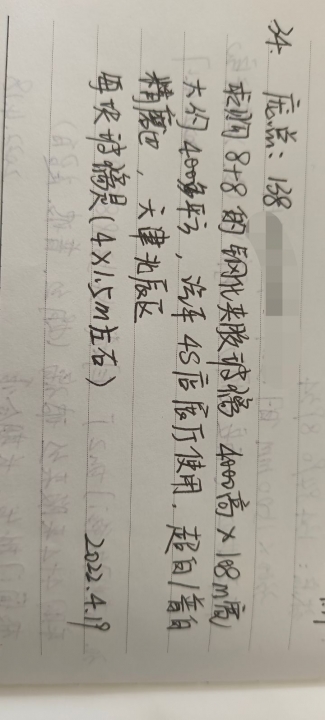 34. 庞总：138
求购8+8的钢化夹胶玻璃 4000高×108m宽
大约400多平方，汽车4S店展厅使用，超白/普白
精磨边，天津北辰区
每块玻璃是（4×1.5m左右）
2022.4.19